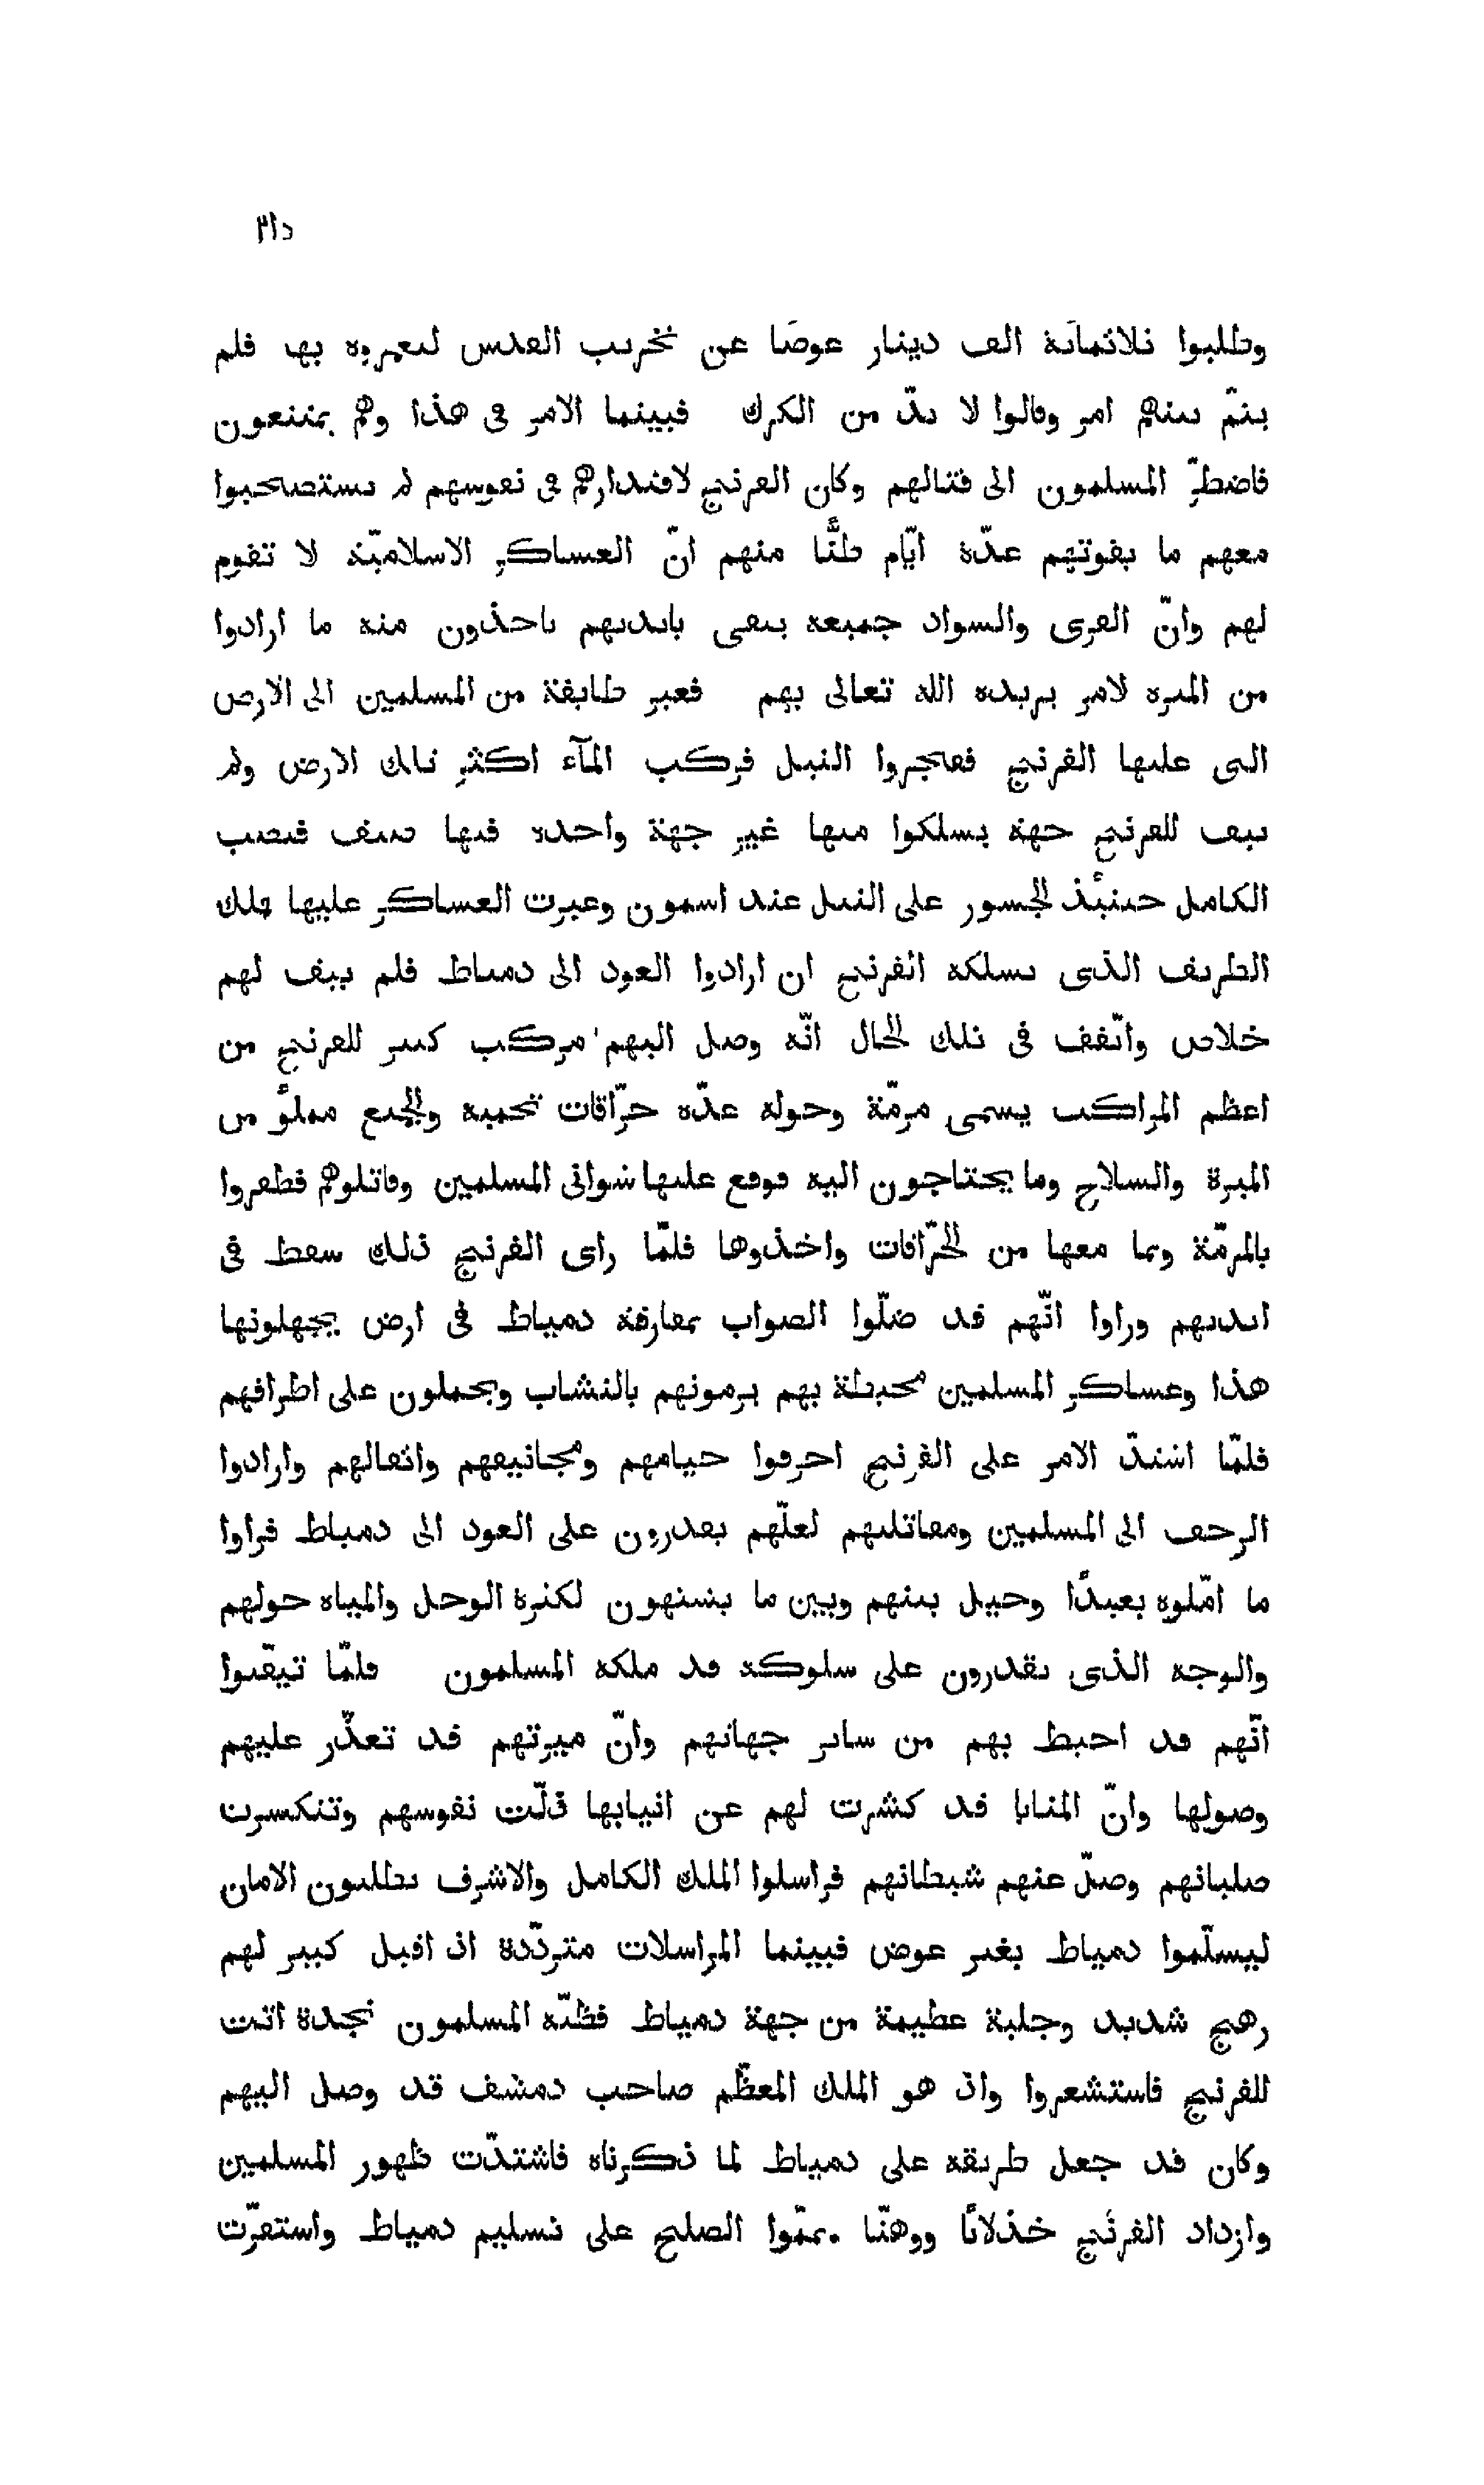 ٢١٥
وطلبوا ثلاثمائة الف دينار عوضًا عن تخريب القدس ليعمروه بها فلم
يتمّ بينهم امر وقالوا لا بدّ من الكرك فبينما الامر فى هذا وهم يمتنعون
فاضطرّ المسلمون الى قتالهم وكان الفرنج لاقتدارهم فى نفوسهم لم يستصحبوا
معهم ما يقوتهم عدّة ايّام ظنًّا منهم انّ العساكر الاسلاميّة لا تقوم
لهم وانّ القرى والسواد جميعه يبقى بايديهم ياخذون منه ما ارادوا
من الميره لامر يريده الله تعالى بهم فعبر طايفة من المسلمين الى الارض
التى عليها الفرنج ففجروا النيل فركب المآء اكثر تلك الارض ولم
يبق للفرنج جهة يسلكوا منها غير جهة واحده فيها ضيق فنصب
الكامل حينئذ الجسور على النيل عند اسمون وعبرت العساكر عليها فملك
الطريق الذى يسلكه الفرنج ان ارادوا العود الى دمياط فلم يبق لهم
خلاص واتّفق فى تلك الحال انّه وصل اليهم مركب كبير للفرنج من
اعظم المراكب يسمى مرمّة وحوله عدّه حرّاقات تحميه والجميع مملوّ من
الميرة والسلاح وما يحتاجون اليه فوقع عليها شوانى المسلمين وقاتلوهم فظفروا
بالمرمّة وبما معها من الحرّاقات واخذوها فلمّا راى الفرنج ذلك سقط فى
ايديهم وراوا انّهم قد ضلّوا الصواب بمفارقة دمياط فى ارض يجهلونها
هذا وعساكر المسلمين محيطة بهم يرمونهم بالنشاب ويحملون على اطرافهم
فلمّا اشتدّ الامر على الفرنج احرقوا خيامهم ومجانيقهم واثقالهم وارادوا
الزحف الى المسلمين ومقاتلتهم لعلّهم يقدرون على العود الى دمياط فراوا
ما امّلوه بعيدًا وحيل بينهم وبين ما يشتهون لكثرة الوحل والمياه حولهم
والوجه الذى يقدرون على سلوكه قد ملكه المسلمون فلمّا تيقّنوا
انّهم قد احيط بهم من ساير جهاتهم وانّ ميرتهم قد تعذّر عليهم
وصولها وانّ المنايا قد كشرت لهم عن انيابها ذلّت نفوسهم وتنكسرت
صلبانهم وضلّ عنهم شيطانهم فراسلوا الملك الكامل والاشرف يطلبون الامان
ليسلّموا دمياط بغير عوض فبينما المراسلات متردّدة اذ اقبل كبير لهم
رهج شديد وجلبة عظيمة من جهة دمياط فظنّه المسلمون نجدة اتت
للفرنج فاستشعروا واذ هو الملك المعظّم صاحب دمشق قد وصل اليهم
وكان قد جعل طريقه على دمياط لما ذكرناه فاشتدّت ظهور المسلمين
وازداد الفرنج خذلانًا ووهنًا وتمّموا الصلح على تسليم دمياط واستقرّت